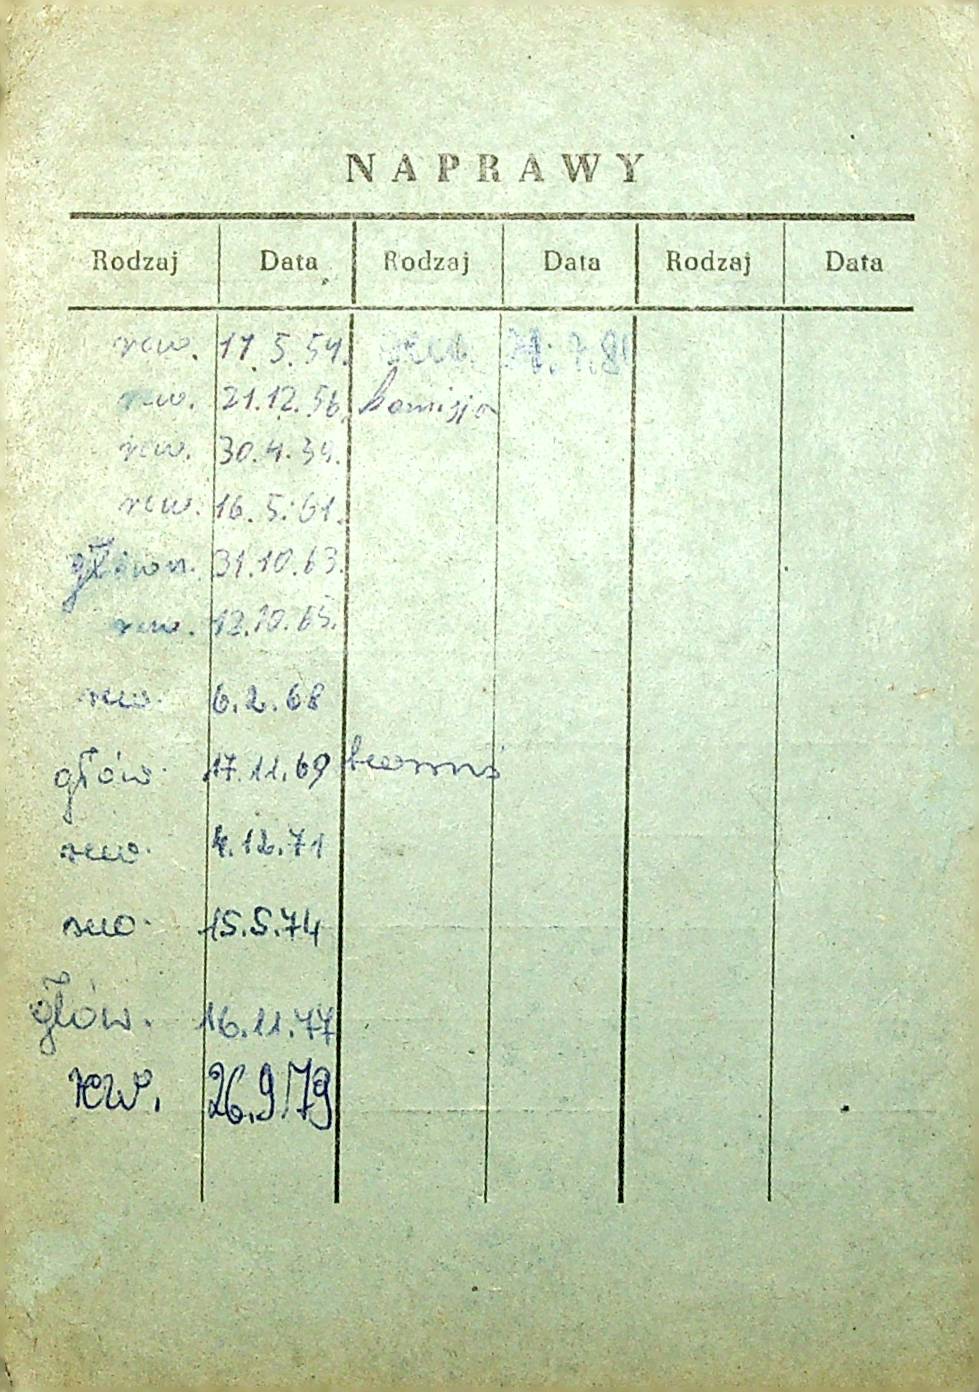 NAPRAWY
Rodzaj Data Rodzaj Data Rodzaj Data
rew. 17.5.54.
rew. 21.12.56. komisja
rew. 30.4.59.
rew. 16.5.61.
główn. 31.10.63.
rew. 12.10.65.
rew. 6.2.68
głów. 17.11.69
rew. 4.12.71
rew. 15.5.74
głów. 16.11.77
rew. 26.9.79